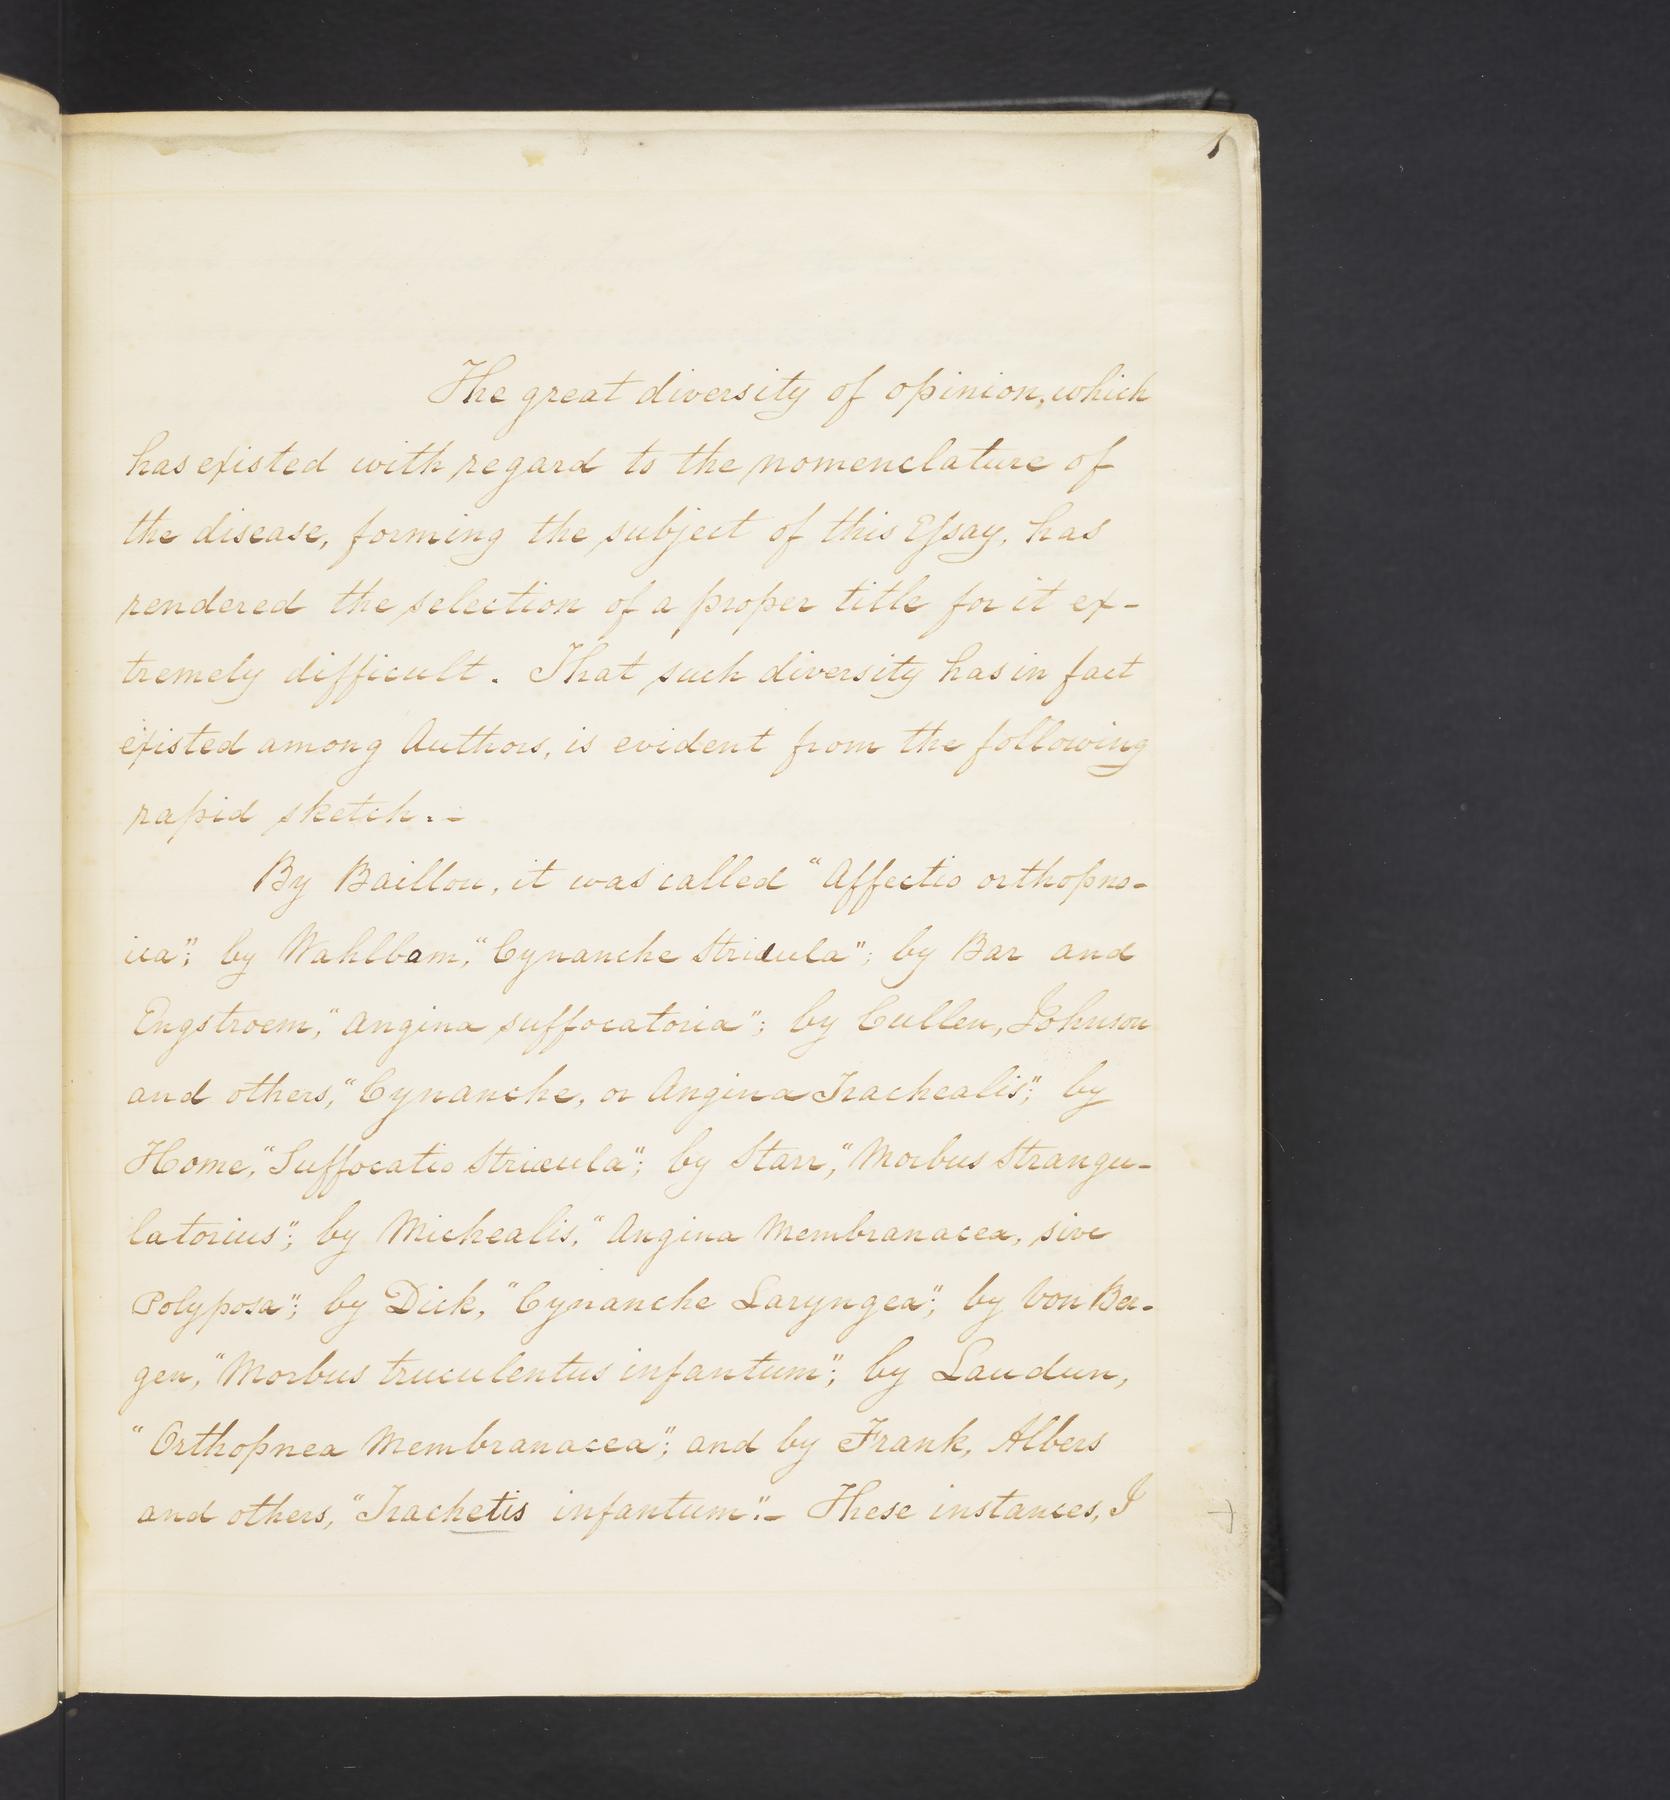 1
The great diversity of opinion, which
has existed with regard to the nomenclature of
the disease, forming the subject of this Essay, has
rendered the selection of a proper title for it ex-
tremely difficult. That such diversity has in fact
existed among Authors, is evident from the following
rapid sketch.-
By Baillou, it was called "Affectio orthopno-
ica"; by Wahlbom, "Cynanche Stridula"; by Bar and
Engstroem, "Angina suffocatoria"; by Cullen, Johnson
and others, "Cynanche, or Angina Trachealis"; by
Home, "Suffocatio Stridula"; by Starr, "Morbus Strangu-
latorius"; by Michealis, "Angina Membranacea, sive
Polyposa"; by Dick, "Cynanche Laryngea"; by Von Ber-
gen, "Morbus truculentus infantum"; by Laudun,
"Orthopnea Membranacea"; and by Frank, Albers
and others, "Trachetis infantum".- These instances, I